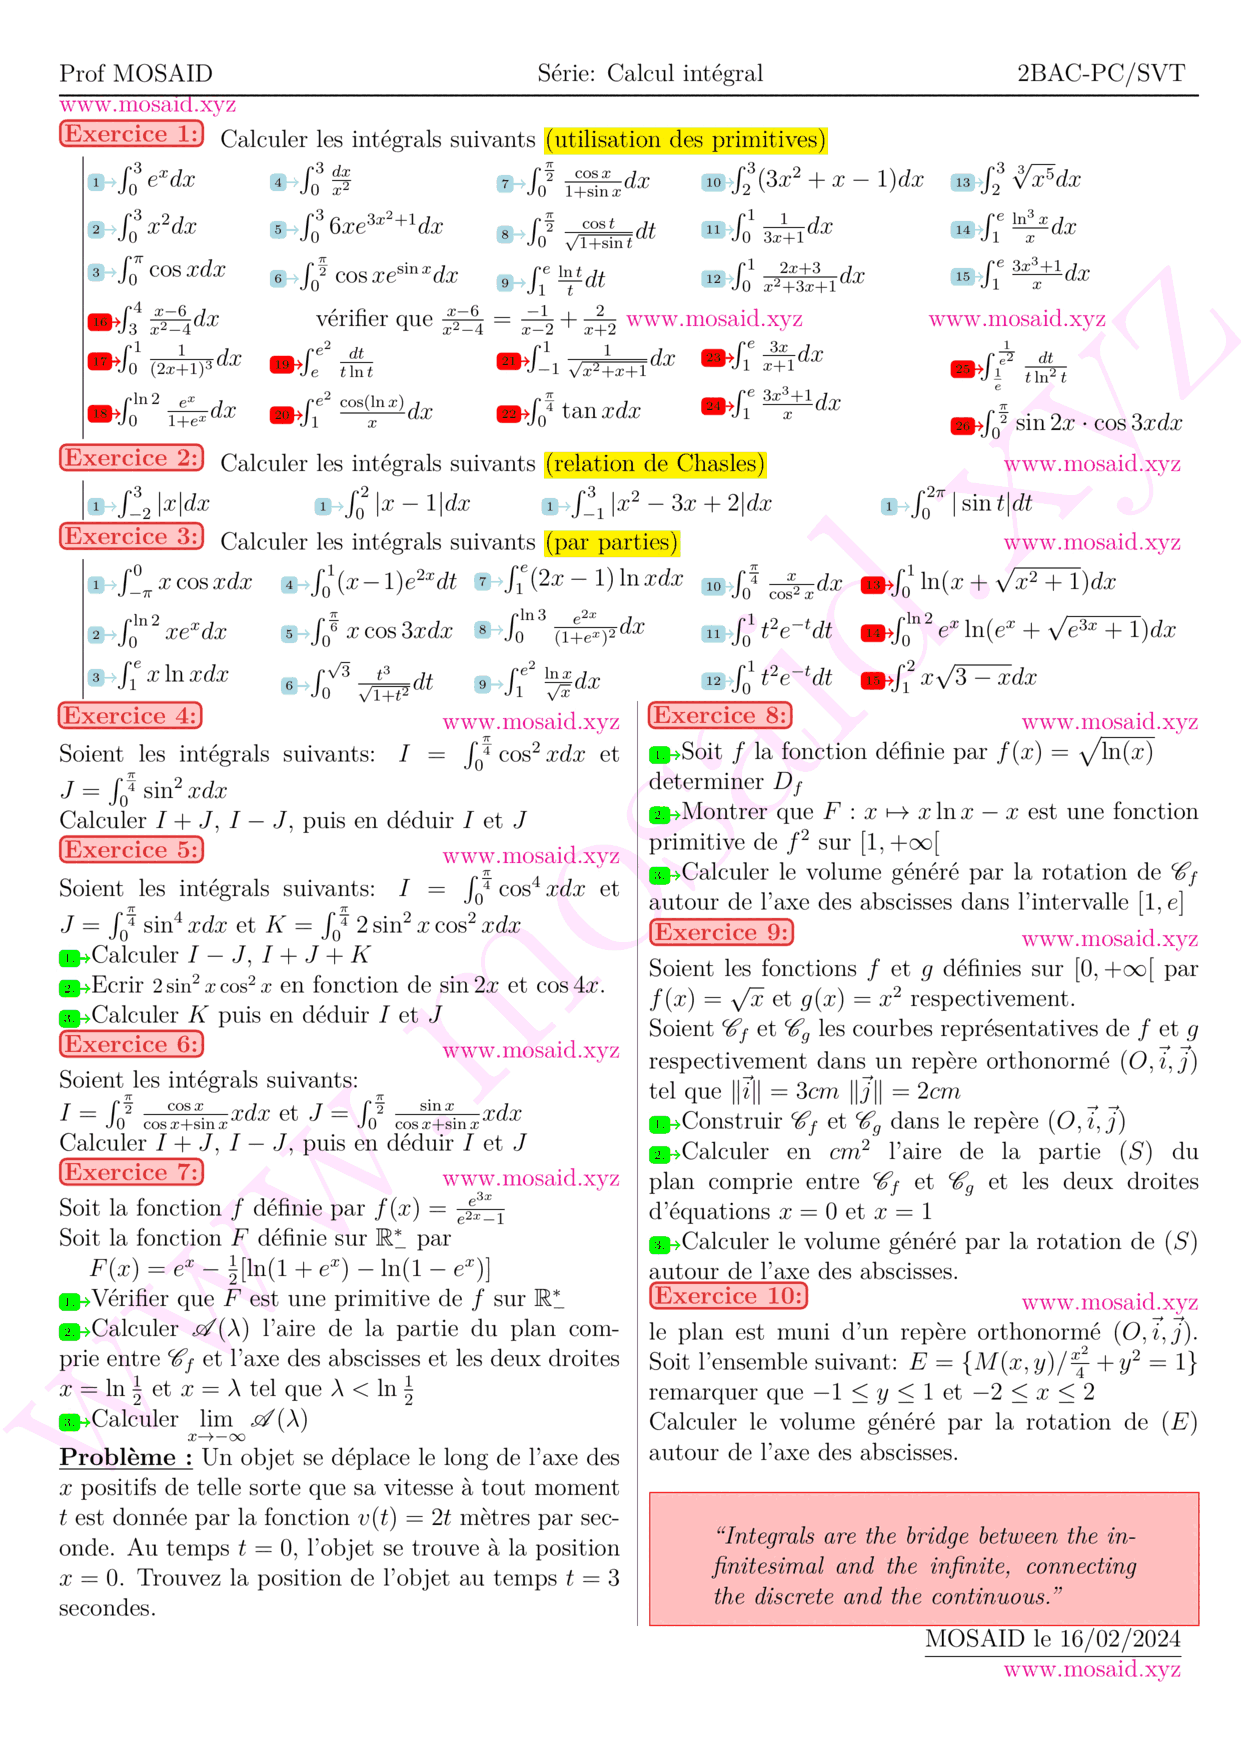 Prof MOSAID Série: Calcul intégral 2BAC-PC/SVT
www.mosaid.xyz
Exercice 1: Calculer les intégrals suivants (utilisation des primitives)
1 ∫_0^3 e^x dx 4 ∫_0^3 dx/x^2 7 ∫_0^{π/2} cos x/(1+sin x) dx 10 ∫_2^3 (3x^2 + x − 1)dx 13 ∫_2^3 ∛(x^5) dx
2 ∫_0^3 x^2 dx 5 ∫_0^3 6xe^{3x^2+1} dx 8 ∫_0^{π/2} cos t/√(1+sin t) dt 11 ∫_0^1 1/(3x+1) dx 14 ∫_1^e ln^3 x/x dx
3 ∫_0^π cos xdx 6 ∫_0^{π/2} cos xe^{sin x} dx 9 ∫_1^e ln t/t dt 12 ∫_0^1 (2x+3)/(x^2+3x+1) dx 15 ∫_1^e (3x^3+1)/x dx
16 ∫_3^4 (x−6)/(x^2−4) dx vérifier que (x−6)/(x^2−4) = −1/(x−2) + 2/(x+2) www.mosaid.xyz www.mosaid.xyz
17 ∫_0^1 1/(2x+1)^3 dx 19 ∫_e^{e^2} dt/(t ln t) 21 ∫_{−1}^1 1/√(x^2+x+1) dx 23 ∫_1^e 3x/(x+1) dx 25 ∫_{1/e}^{1/e^2} dt/(t ln^2 t)
18 ∫_0^{ln 2} e^x/(1+e^x) dx 20 ∫_1^{e^2} cos(ln x)/x dx 22 ∫_0^{π/4} tan xdx 24 ∫_1^e (3x^3+1)/x dx 26 ∫_0^{π/2} sin 2x · cos 3xdx
Exercice 2: Calculer les intégrals suivants (relation de Chasles) www.mosaid.xyz
1 ∫_{−2}^3 |x|dx 1 ∫_0^2 |x − 1|dx 1 ∫_{−1}^3 |x^2 − 3x + 2|dx 1 ∫_0^{2π} | sin t|dt
Exercice 3: Calculer les intégrals suivants (par parties) www.mosaid.xyz
1 ∫_{−π}^0 x cos xdx 4 ∫_0^1 (x−1)e^{2x} dt 7 ∫_1^e (2x − 1) ln xdx 10 ∫_0^{π/4} x/cos^2 x dx 13 ∫_0^1 ln(x + √(x^2 + 1))dx
2 ∫_0^{ln 2} xe^x dx 5 ∫_0^{π/6} x cos 3xdx 8 ∫_0^{ln 3} e^{2x}/(1+e^x)^2 dx 11 ∫_0^1 t^2 e^{−t} dt 14 ∫_0^{ln 2} e^x ln(e^x + √(e^{3x} + 1))dx
3 ∫_1^e x ln xdx 6 ∫_0^{√3} t^3/√(1+t^2) dt 9 ∫_1^{e^2} ln x/√x dx 12 ∫_0^1 t^2 e^{−t} dt 15 ∫_1^2 x√(3 − x)dx
Exercice 4: www.mosaid.xyz
Soient les intégrals suivants: I = ∫_0^{π/4} cos^2 xdx et
J = ∫_0^{π/4} sin^2 xdx
Calculer I + J, I − J, puis en déduir I et J
Exercice 5: www.mosaid.xyz
Soient les intégrals suivants: I = ∫_0^{π/4} cos^4 xdx et
J = ∫_0^{π/4} sin^4 xdx et K = ∫_0^{π/4} 2 sin^2 x cos^2 xdx
1. Calculer I − J, I + J + K
2. Ecrir 2 sin^2 x cos^2 x en fonction de sin 2x et cos 4x.
3. Calculer K puis en déduir I et J
Exercice 6: www.mosaid.xyz
Soient les intégrals suivants:
I = ∫_0^{π/2} cos x/(cos x+sin x) xdx et J = ∫_0^{π/2} sin x/(cos x+sin x) xdx
Calculer I + J, I − J, puis en déduir I et J
Exercice 7: www.mosaid.xyz
Soit la fonction f définie par f(x) = e^{3x}/(e^{2x}−1)
Soit la fonction F définie sur ℝ*_− par
F(x) = e^x − 1/2[ln(1 + e^x) − ln(1 − e^x)]
1. Vérifier que F est une primitive de f sur ℝ*_−
2. Calculer 𝒜(λ) l'aire de la partie du plan com-
prie entre 𝒞_f et l'axe des abscisses et les deux droites
x = ln 1/2 et x = λ tel que λ < ln 1/2
3. Calculer lim_{x→−∞} 𝒜(λ)
Problème : Un objet se déplace le long de l'axe des
x positifs de telle sorte que sa vitesse à tout moment
t est donnée par la fonction v(t) = 2t mètres par sec-
onde. Au temps t = 0, l'objet se trouve à la position
x = 0. Trouvez la position de l'objet au temps t = 3
secondes.
Exercice 8: www.mosaid.xyz
1. Soit f la fonction définie par f(x) = √(ln(x))
determiner D_f
2. Montrer que F : x ↦ x ln x − x est une fonction
primitive de f^2 sur [1, +∞[
3. Calculer le volume généré par la rotation de 𝒞_f
autour de l'axe des abscisses dans l'intervalle [1, e]
Exercice 9: www.mosaid.xyz
Soient les fonctions f et g définies sur [0, +∞[ par
f(x) = √x et g(x) = x^2 respectivement.
Soient 𝒞_f et 𝒞_g les courbes représentatives de f et g
respectivement dans un repère orthonormé (O, i⃗, j⃗)
tel que ‖i⃗‖ = 3cm ‖j⃗‖ = 2cm
1. Construir 𝒞_f et 𝒞_g dans le repère (O, i⃗, j⃗)
2. Calculer en cm^2 l'aire de la partie (S) du
plan comprie entre 𝒞_f et 𝒞_g et les deux droites
d'équations x = 0 et x = 1
3. Calculer le volume généré par la rotation de (S)
autour de l'axe des abscisses.
Exercice 10: www.mosaid.xyz
le plan est muni d'un repère orthonormé (O, i⃗, j⃗).
Soit l'ensemble suivant: E = {M(x, y)/ x^2/4 + y^2 = 1}
remarquer que −1 ≤ y ≤ 1 et −2 ≤ x ≤ 2
Calculer le volume généré par la rotation de (E)
autour de l'axe des abscisses.
“Integrals are the bridge between the in-
finitesimal and the infinite, connecting
the discrete and the continuous.”
MOSAID le 16/02/2024
www.mosaid.xyz
www.mosaid.xyz